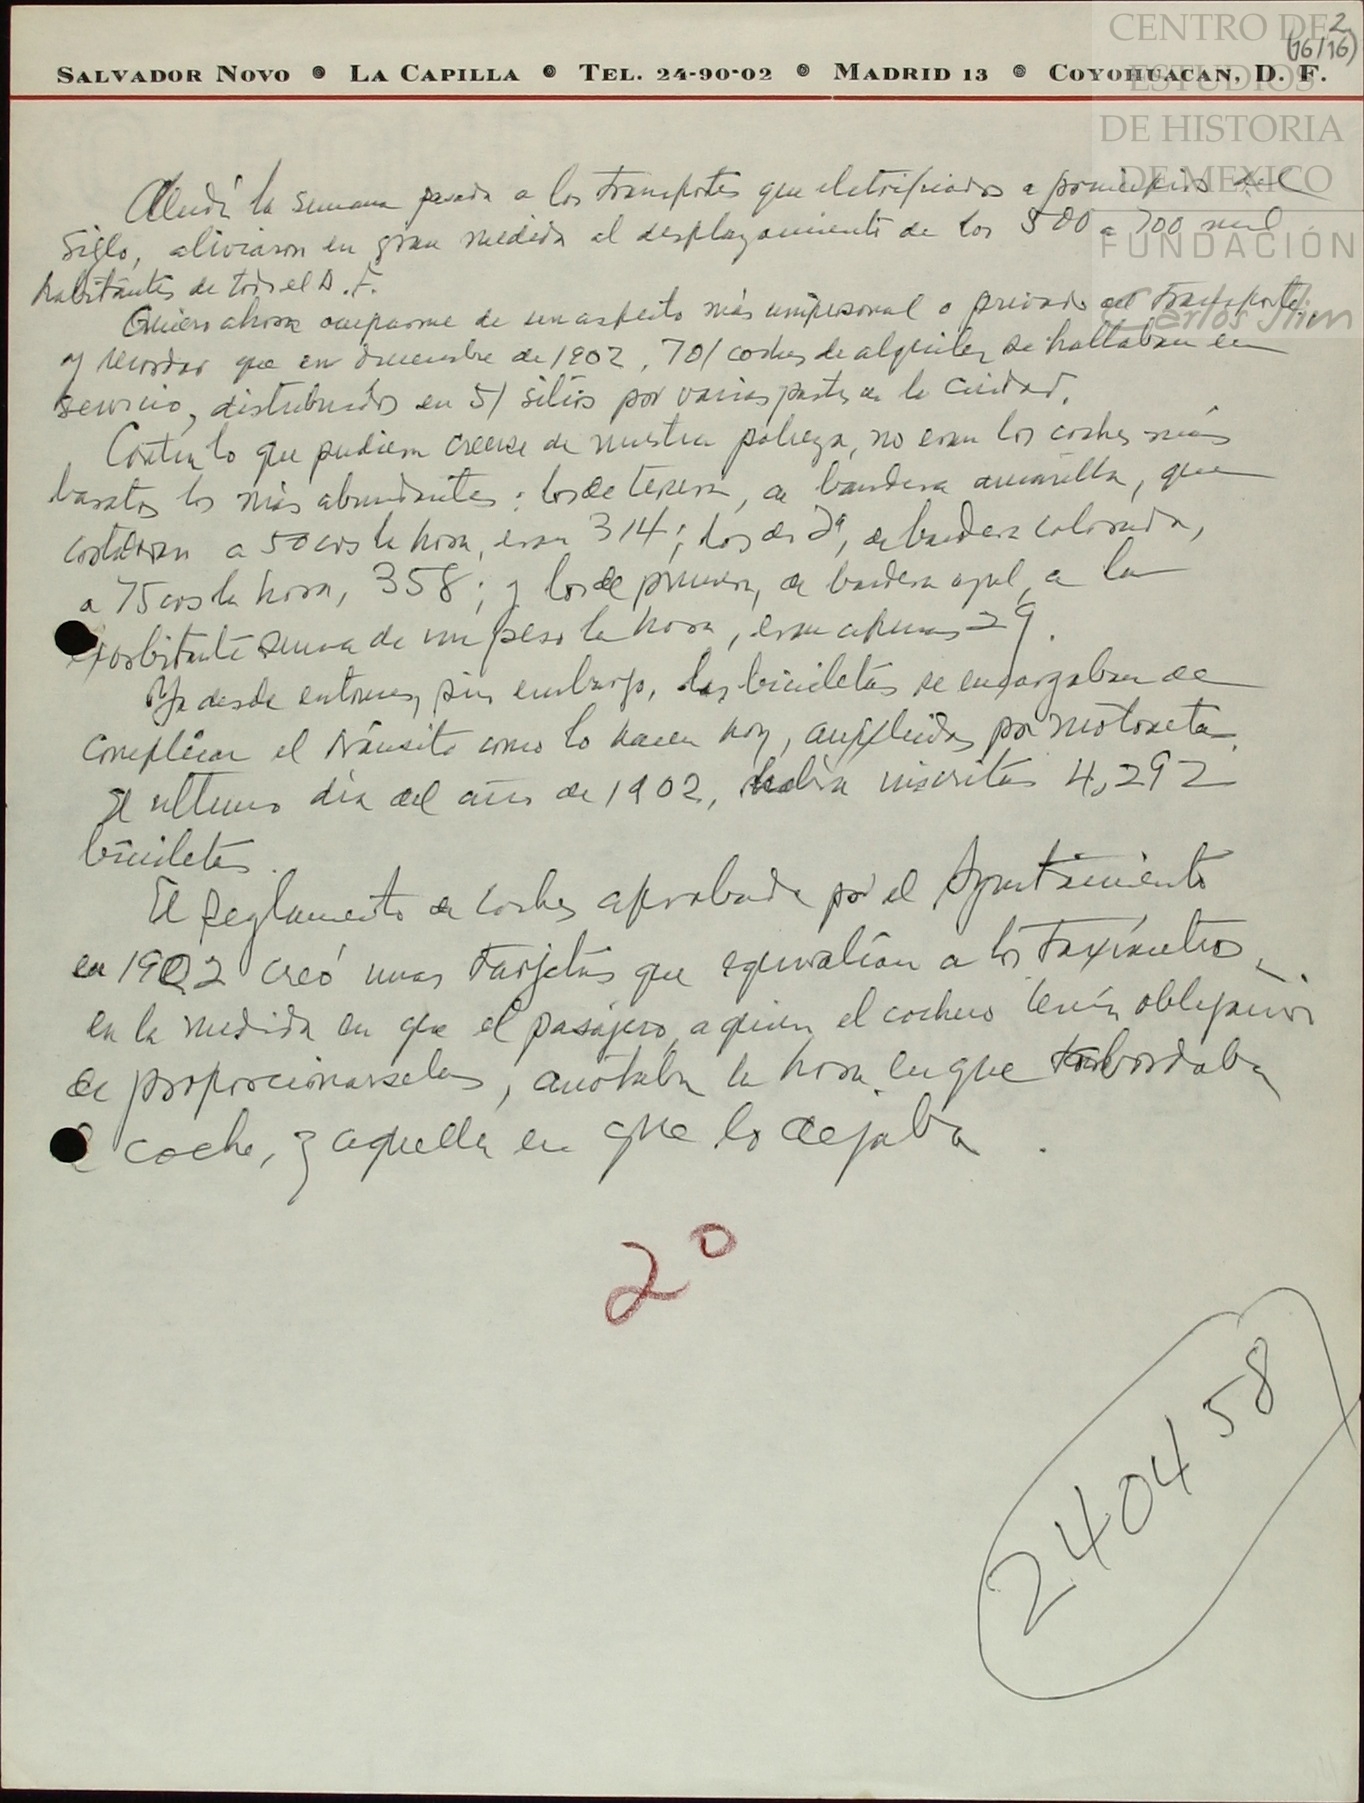 CENTRO DE
ESTUDIOS
DE HISTORIA
DE MEXICO
FUNDACIÓN
Carlos Slim
2
(16/16)
SALVADOR NOVO ● LA CAPILLA ● TEL. 24-90-02 ● MADRID 13 ● COYOHUACAN, D. F.
Aludí la semana pasada a los transportes que eletrificados a principios del
siglo, aliviaron en gran medida el desplazamiento de los 500 a 700 mil
habitantes de todo el D.F.
Quiero ahora ocuparme de un aspecto más unipersonal o privado del transporte,
y recordar que en diciembre de 1902, 701 coches de alquiler se hallaban en
servicio, distribuidos en 51 sitios por varias partes de la ciudad.
Contra lo que pudiera creerse de nuestra pobreza, no eran los coches más
baratos los más abundantes: los de tercera, de bandera amarilla, que
costaban a 50 cvs la hora, eran 314; los de 2ª, de bandera colorada,
a 75 cvs la hora, 358; y los de primera, de bandera azul, a la
exorbitante suma de un peso la hora, eran apenas 29.
Ya desde entonces, sin embargo, las bicicletas se encargaban de
complicar el tránsito como lo hacen hoy, auxiliadas por motonetas.
El ultimo día del año de 1902, había inscritas 4,292
bicicletas.
El Reglamento de coches aprobado por el Ayuntamiento
en 1902 creó unas tarjetas que equivalían a los taxímetros,
en la medida en que el pasajero, a quien el cochero tenía obligación
de proporcionarselas, anotaba la hora en que abordaba
el coche, y aquella en que lo dejaba.
2º
240458